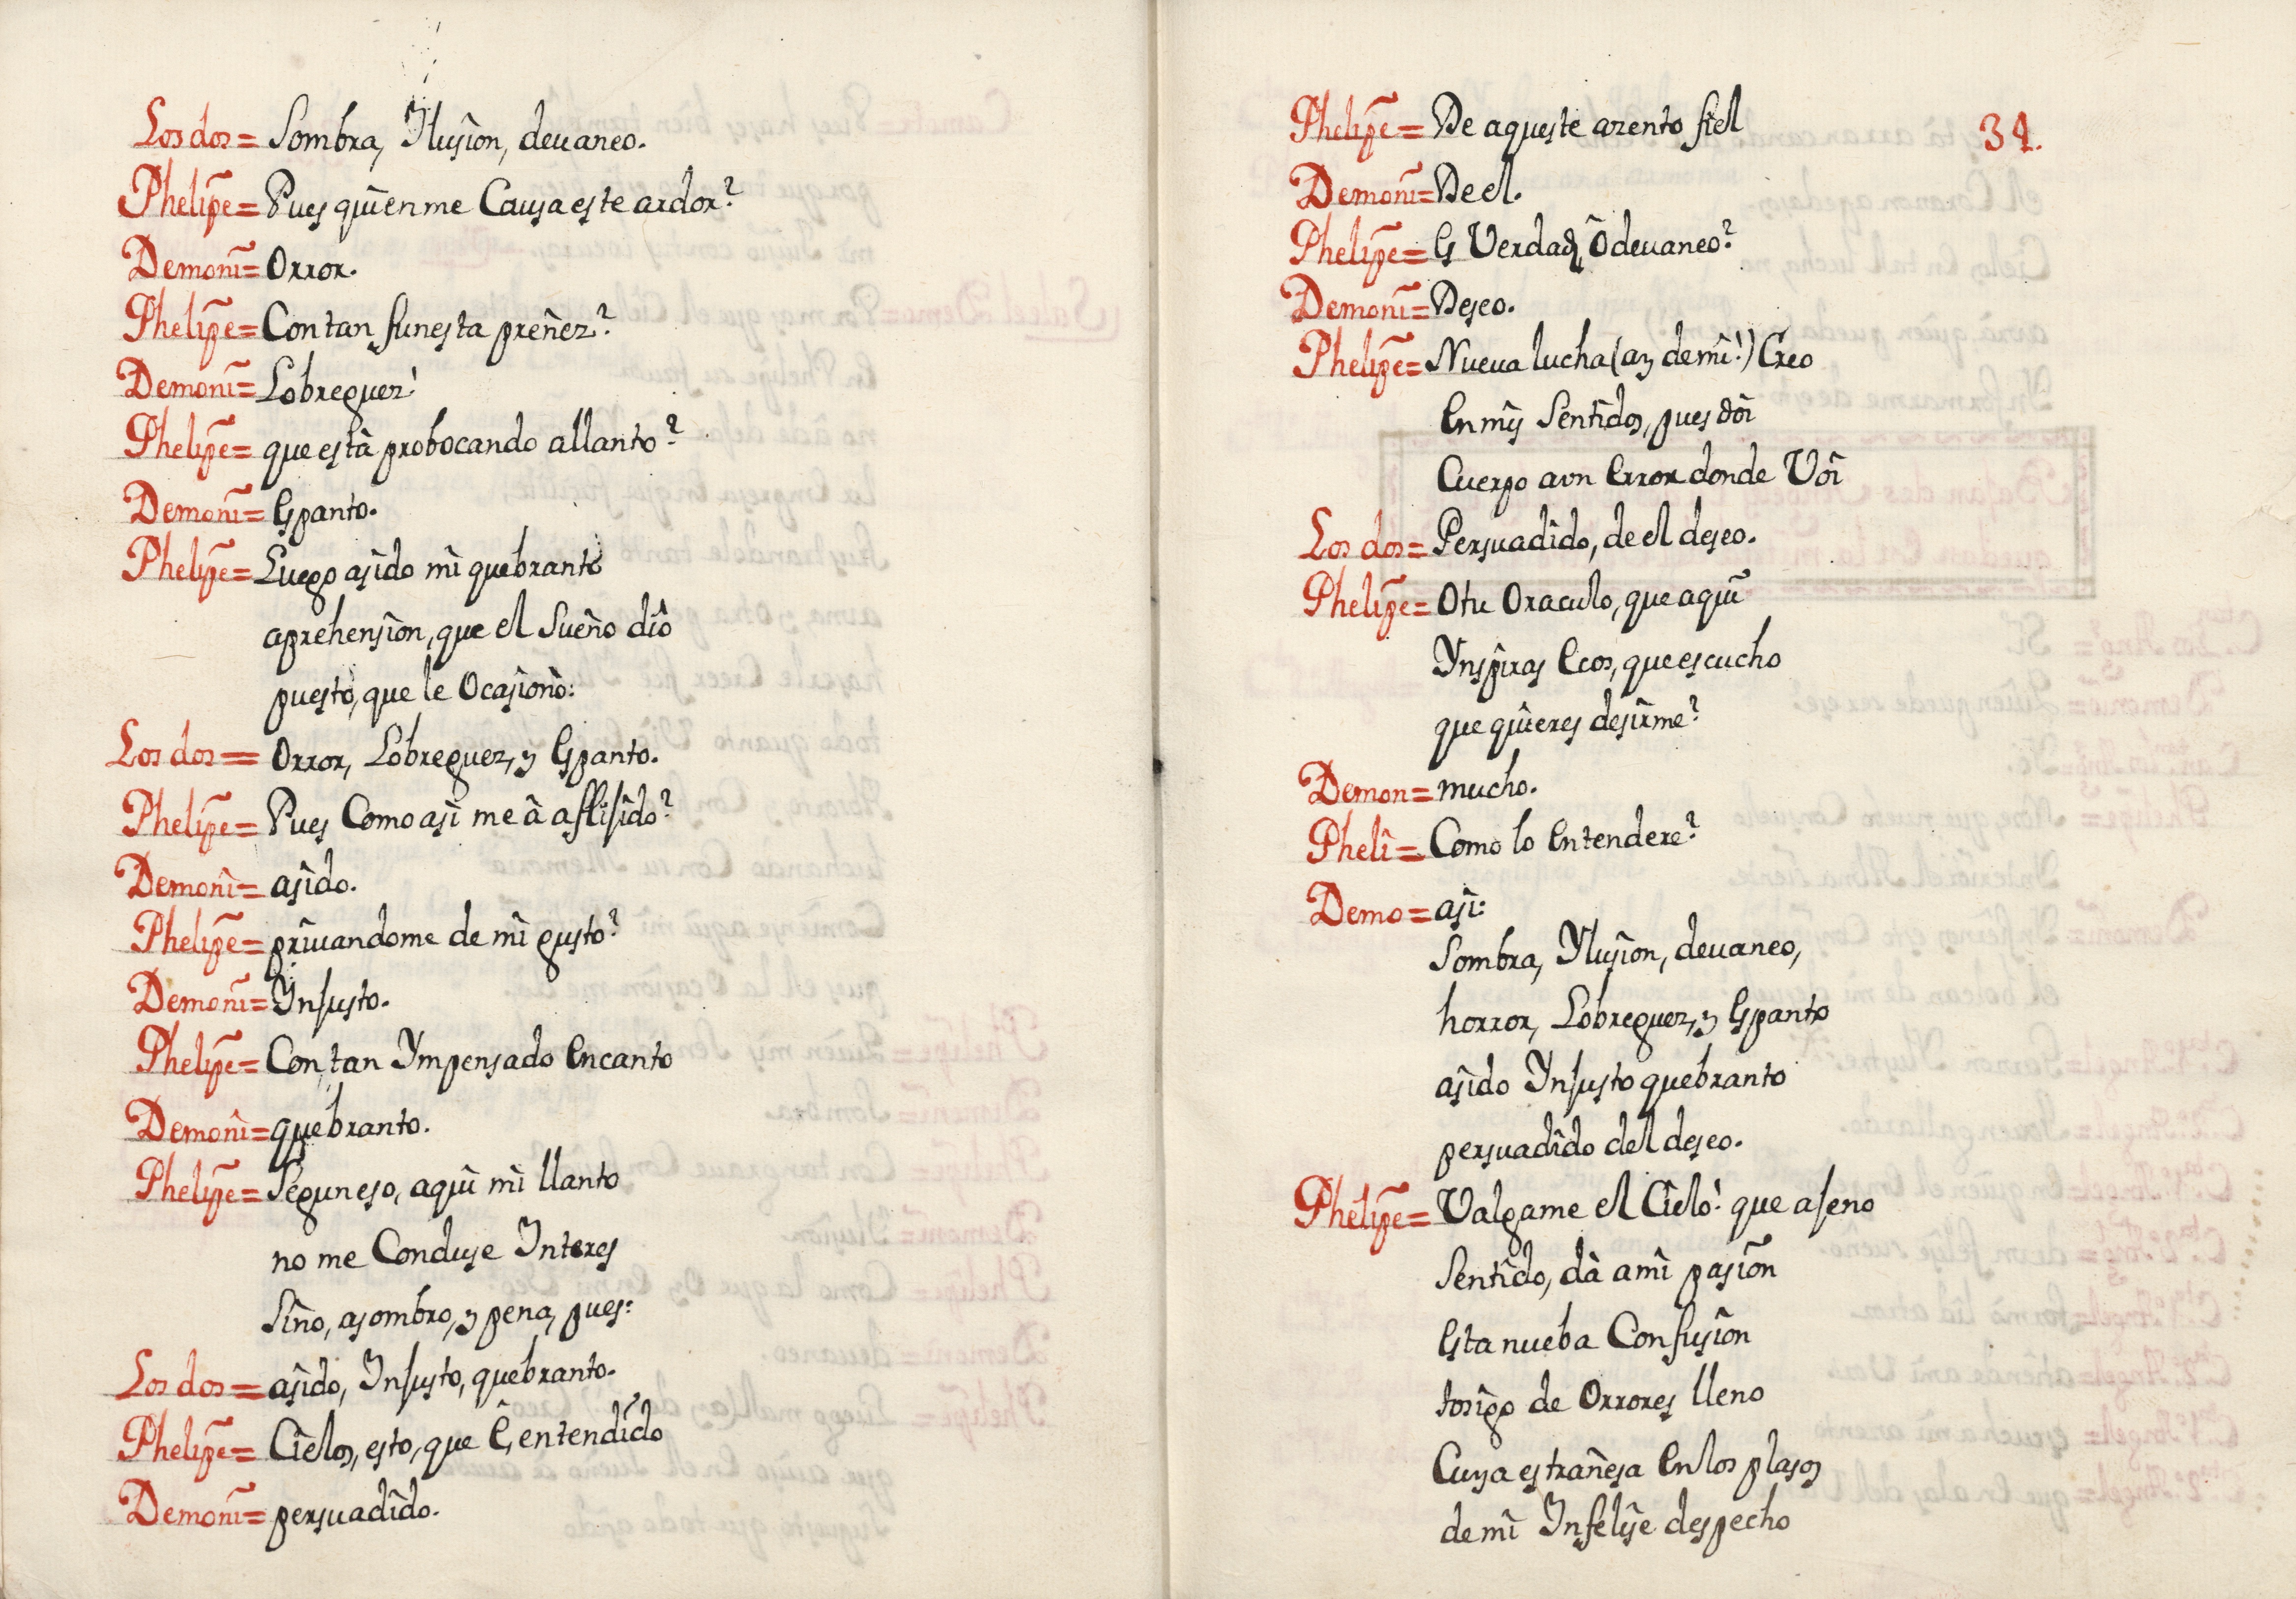 Los dos = Sombra, Ylusion, devaneo.
Phelipe = Pues quien me Causa este ardor?
Demoni = Orror.
Phelipe = Con tan funesta preñez?
Demoni = Lobreguez!
Phelipe = que està probocando allanto?
Demoni = Espanto.
Phelipe = Luego asido mi quebranto
aprehension, que el Sueño diô
puesto, que le Ocasionò:
Los dos = Orror, Lobreguez, y Espanto.
Phelipe = Pues Como asi me â aflijido?
Demoni = asido.
Phelipe = privandome de mi gusto?
Demoni = Injusto.
Phelipe = Con tan Ympensado Encanto
Demoni = quebranto.
Phelipe = Segun eso, aqui mi llanto
no me Conduse Interes
Sino, asombro, y pena, pues:
Los dos = asido, Injusto, quebranto.
Phelipe = Cielos, esto, que Ê, entendido
Demoni = persuadido.
Phelipe = De aqueste azento fiel
34.
Demoni = De el.
Phelipe = Es Verdad, Ô devaneo?
Demoni = Deseo.
Phelipe = Nueva lucha (ay de mi!) Creo
En mis Sentidos, pues doi
Cuerpo a vn Error donde Voi
Los dos = Persuadido, de el deseo.
Phelipe = O tu Oraculo, que aqui
Ynspiras Ecos, que escucho
que quieres desirme?
Demon = mucho.
Pheli = Como lo Entendere?
Demo = asi:
Sombra, Ylusion, devaneo,
horror, Lobreguez, y Espanto
asido Ynjusto quebranto
persuadido del deseo.
Phelipe = Valgame el Cielo! que ajeno
Sentido, dà a mi pasion
Esta nueba Confusion
tosigo de Orrores lleno
Cuya estrañesa En los plasos
de mi Infelise despecho